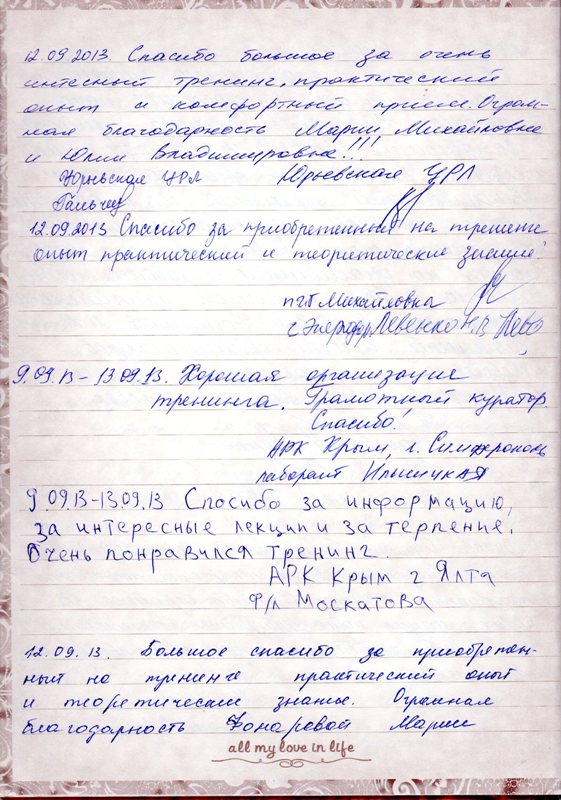 12.09.2013. Спасибо большое за очень
интесный тренинг, практический
опыт и комфортный прием. Огром-
ная благодарность Марии Михайловне
и Юлии Владимировне!!!
Юрьевская ЦРЛ Юрьевская ЦРЛ
12.09.2013 Спасибо за приобретенный на тренинге
опыт практический и теоритические знание
пгт Михайловка
Левенко Н.В.
9.09.13 – 13.09.13. Хорошая организация
тренинга. Грамотный куратор.
Спасибо!
АРК Крым, г. Симферополь
лаборант Ильницкая
9.09.13-13.09.13 Спосибо за информацию,
за интересные лекции и за терпение.
Очень понравился тренинг.
АРК Крым г Ялта
ф/л Москатова
12.09.13. Большое спасибо за приобретен-
ный на тренинге практический опыт
и теоретические знанье. Огромная
благодарность Фонаровой Марии
all my love in life